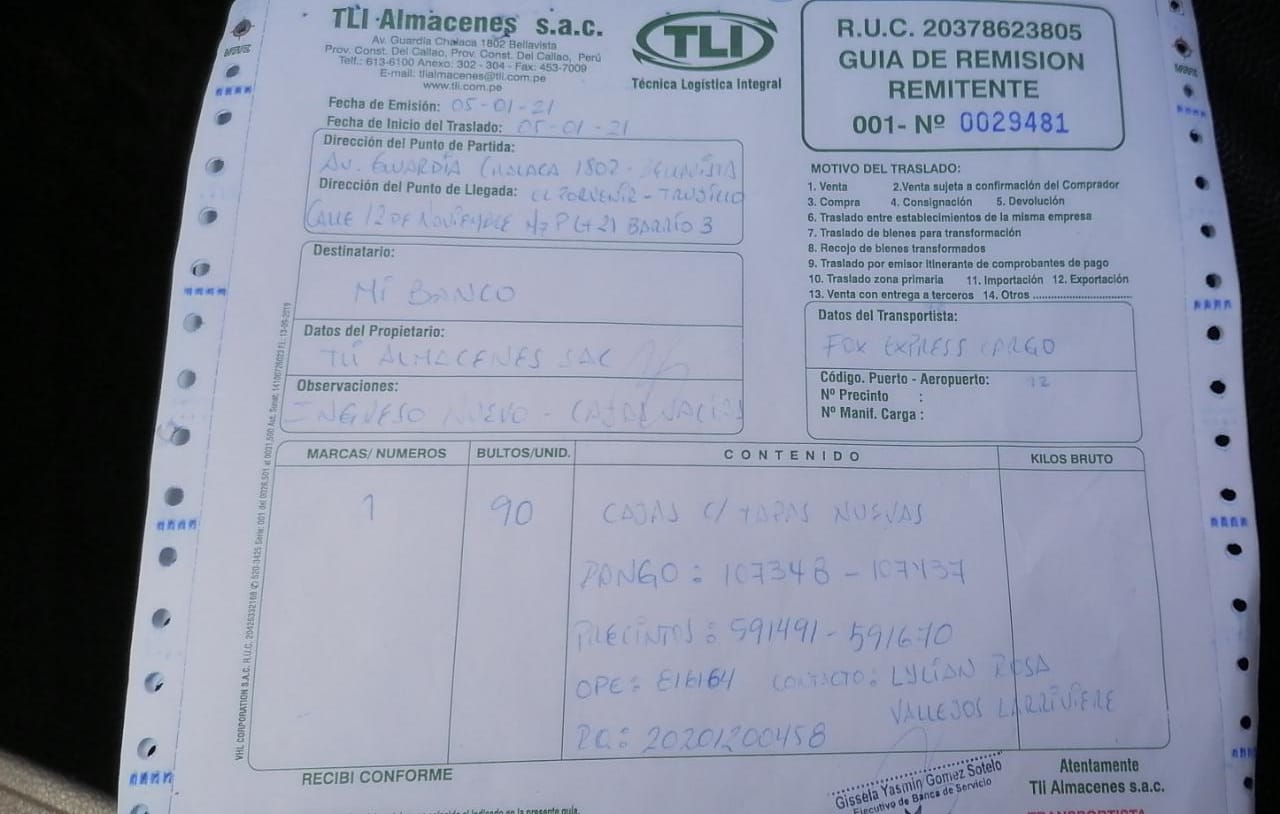 TLI Almacenes s.a.c.
Av. Guardia Chalaca 1802 Bellavista
Prov. Const. Del Callao, Prov. Const. Del Callao, Perú
Telf.: 613-6100 Anexo: 302 - 304 - Fax: 453-7009
E-mail: tlialmacenes@tli.com.pe
www.tli.com.pe
TLI
Técnica Logística Integral
R.U.C. 20378623805
GUIA DE REMISION
REMITENTE
001- Nº 0029481
Fecha de Emisión: 05-01-21
Fecha de Inicio del Traslado: 05-01-21
Dirección del Punto de Partida:
AV. GUARDIA CHALACA 1802 -
Dirección del Punto de Llegada: EL PORVENIR - TRUJILLO
CALLE 12 DE NOVIEMBRE BARRIO 3
Destinatario:
MI BANCO
Datos del Propietario:
TLI ALMACENES SAC
Observaciones:
INGRESO NUEVO - CAJAS VACIAS
MOTIVO DEL TRASLADO:
1. Venta 2.Venta sujeta a confirmación del Comprador
3. Compra 4. Consignación 5. Devolución
6. Traslado entre establecimientos de la misma empresa
7. Traslado de bienes para transformación
8. Recojo de bienes transformados
9. Traslado por emisor itinerante de comprobantes de pago
10. Traslado zona primaria 11. Importación 12. Exportación
13. Venta con entrega a terceros 14. Otros
Datos del Transportista:
FOX EXPRESS CARGO
Código. Puerto - Aeropuerto: 12
Nº Precinto :
Nº Manif. Carga :
MARCAS/ NUMEROS BULTOS/UNID. CONTENIDO KILOS BRUTO
1 90 CAJAS C/ TAPAS NUEVAS
RANGO : 107348 - 107437
PRECINTOS : 591491 - 591670
OPE : 816164 CONTACTO : LYLIAN ROSA
VALLEJOS LARRIVIERE
RQ : 20201200458
RECIBI CONFORME
Gissela Yasmin Gomez Sotelo
Ejecutivo de Banca de Servicio
Atentamente
Tli Almacenes s.a.c.
TRANSPORTISTA